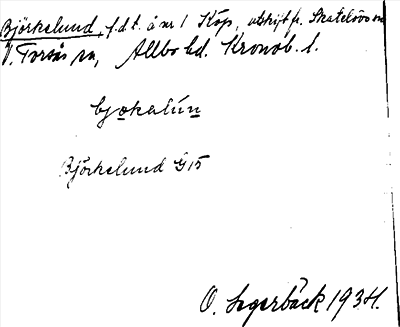 Björkelund, f.d.t. å nr 1 Kåp, utskift fr. Skatelövs sn
V. Torsås sn, Allbo hd. Kronob. l.
bjɵkalún
Björkelund G15
O. Segerbäck 1934.